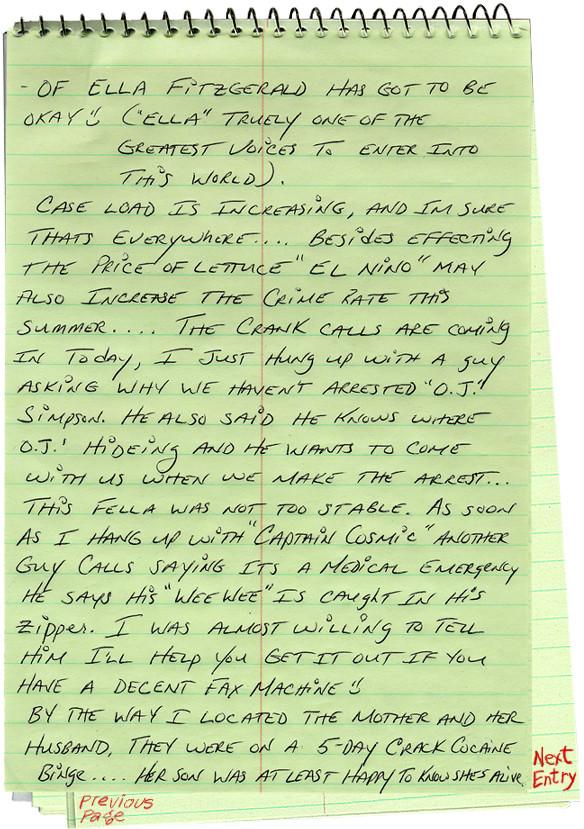 - OF ELLA FITZGERALD HAS GOT TO BE
OKAY ("ELLA" TRUELY ONE OF THE
GREATEST VOICES TO ENTER INTO
THIS WORLD).
CASE LOAD IS INCREASING, AND IM SURE
THATS EVERYWHERE.... BESIDES EFFECTING
THE PRICE OF LETTUCE "EL NINO" MAY
ALSO INCREASE THE CRIME RATE THIS
SUMMER.... THE CRANK CALLS ARE COMING
IN TODAY, I JUST HUNG UP WITH A GUY
ASKING WHY WE HAVENT ARRESTED "O.J."
SIMPSON. HE ALSO SAID HE KNOWS WHERE
O.J.' HIDEING AND HE WANTS TO COME
WITH US WHEN WE MAKE THE ARREST...
THIS FELLA WAS NOT TOO STABLE. AS SOON
AS I HANG UP WITH "CAPTAIN COSMIC" ANOTHER
GUY CALLS SAYING ITS A MEDICAL EMERGENCY
HE SAYS HIS "WEE WEE" IS CAUGHT IN HIS
ZIPPER. I WAS ALMOST WILLING TO TELL
HIM I'LL HELP YOU GET IT OUT IF YOU
HAVE A DECENT FAX MACHINE
BY THE WAY I LOCATED THE MOTHER AND HER
HUSBAND, THEY WERE ON A 5-DAY CRACK COCAINE
BINGE.... HER SON WAS AT LEAST HAPPY TO KNOW SHES ALIVE.
Next
Entry
Previous
Page